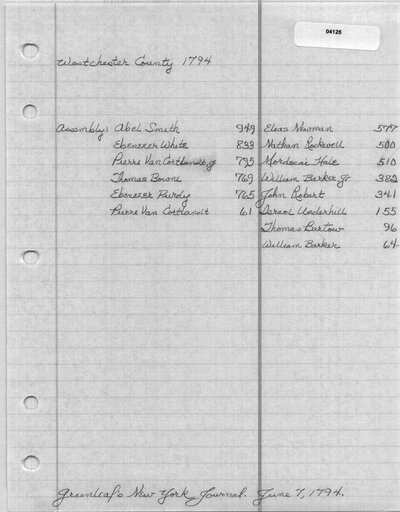 04125
Westchester County 1794
Assembly: Abel Smith 949 Elias Newman 577
Ebenezer White 833 Nathan Rockwell 500
Pierre Van Cortlandt Jr 795 Mordecai Hale 510
Thomas Bowne 769 William Barker Jr 382
Ebenezer Purdy 765 John Robart 341
Pierre Van Cortlandt 61 Israel Underhill 155
Thomas Bartow 96
William Barker 64
Greenleaf's New York Journal. June 7, 1794.